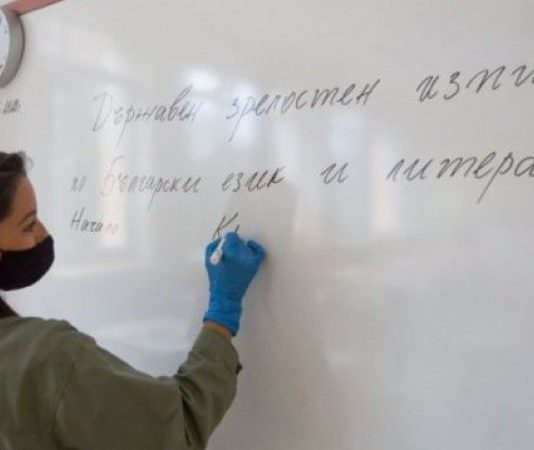 Държавен зрелостен изпи
по Български език и литера
Начало К